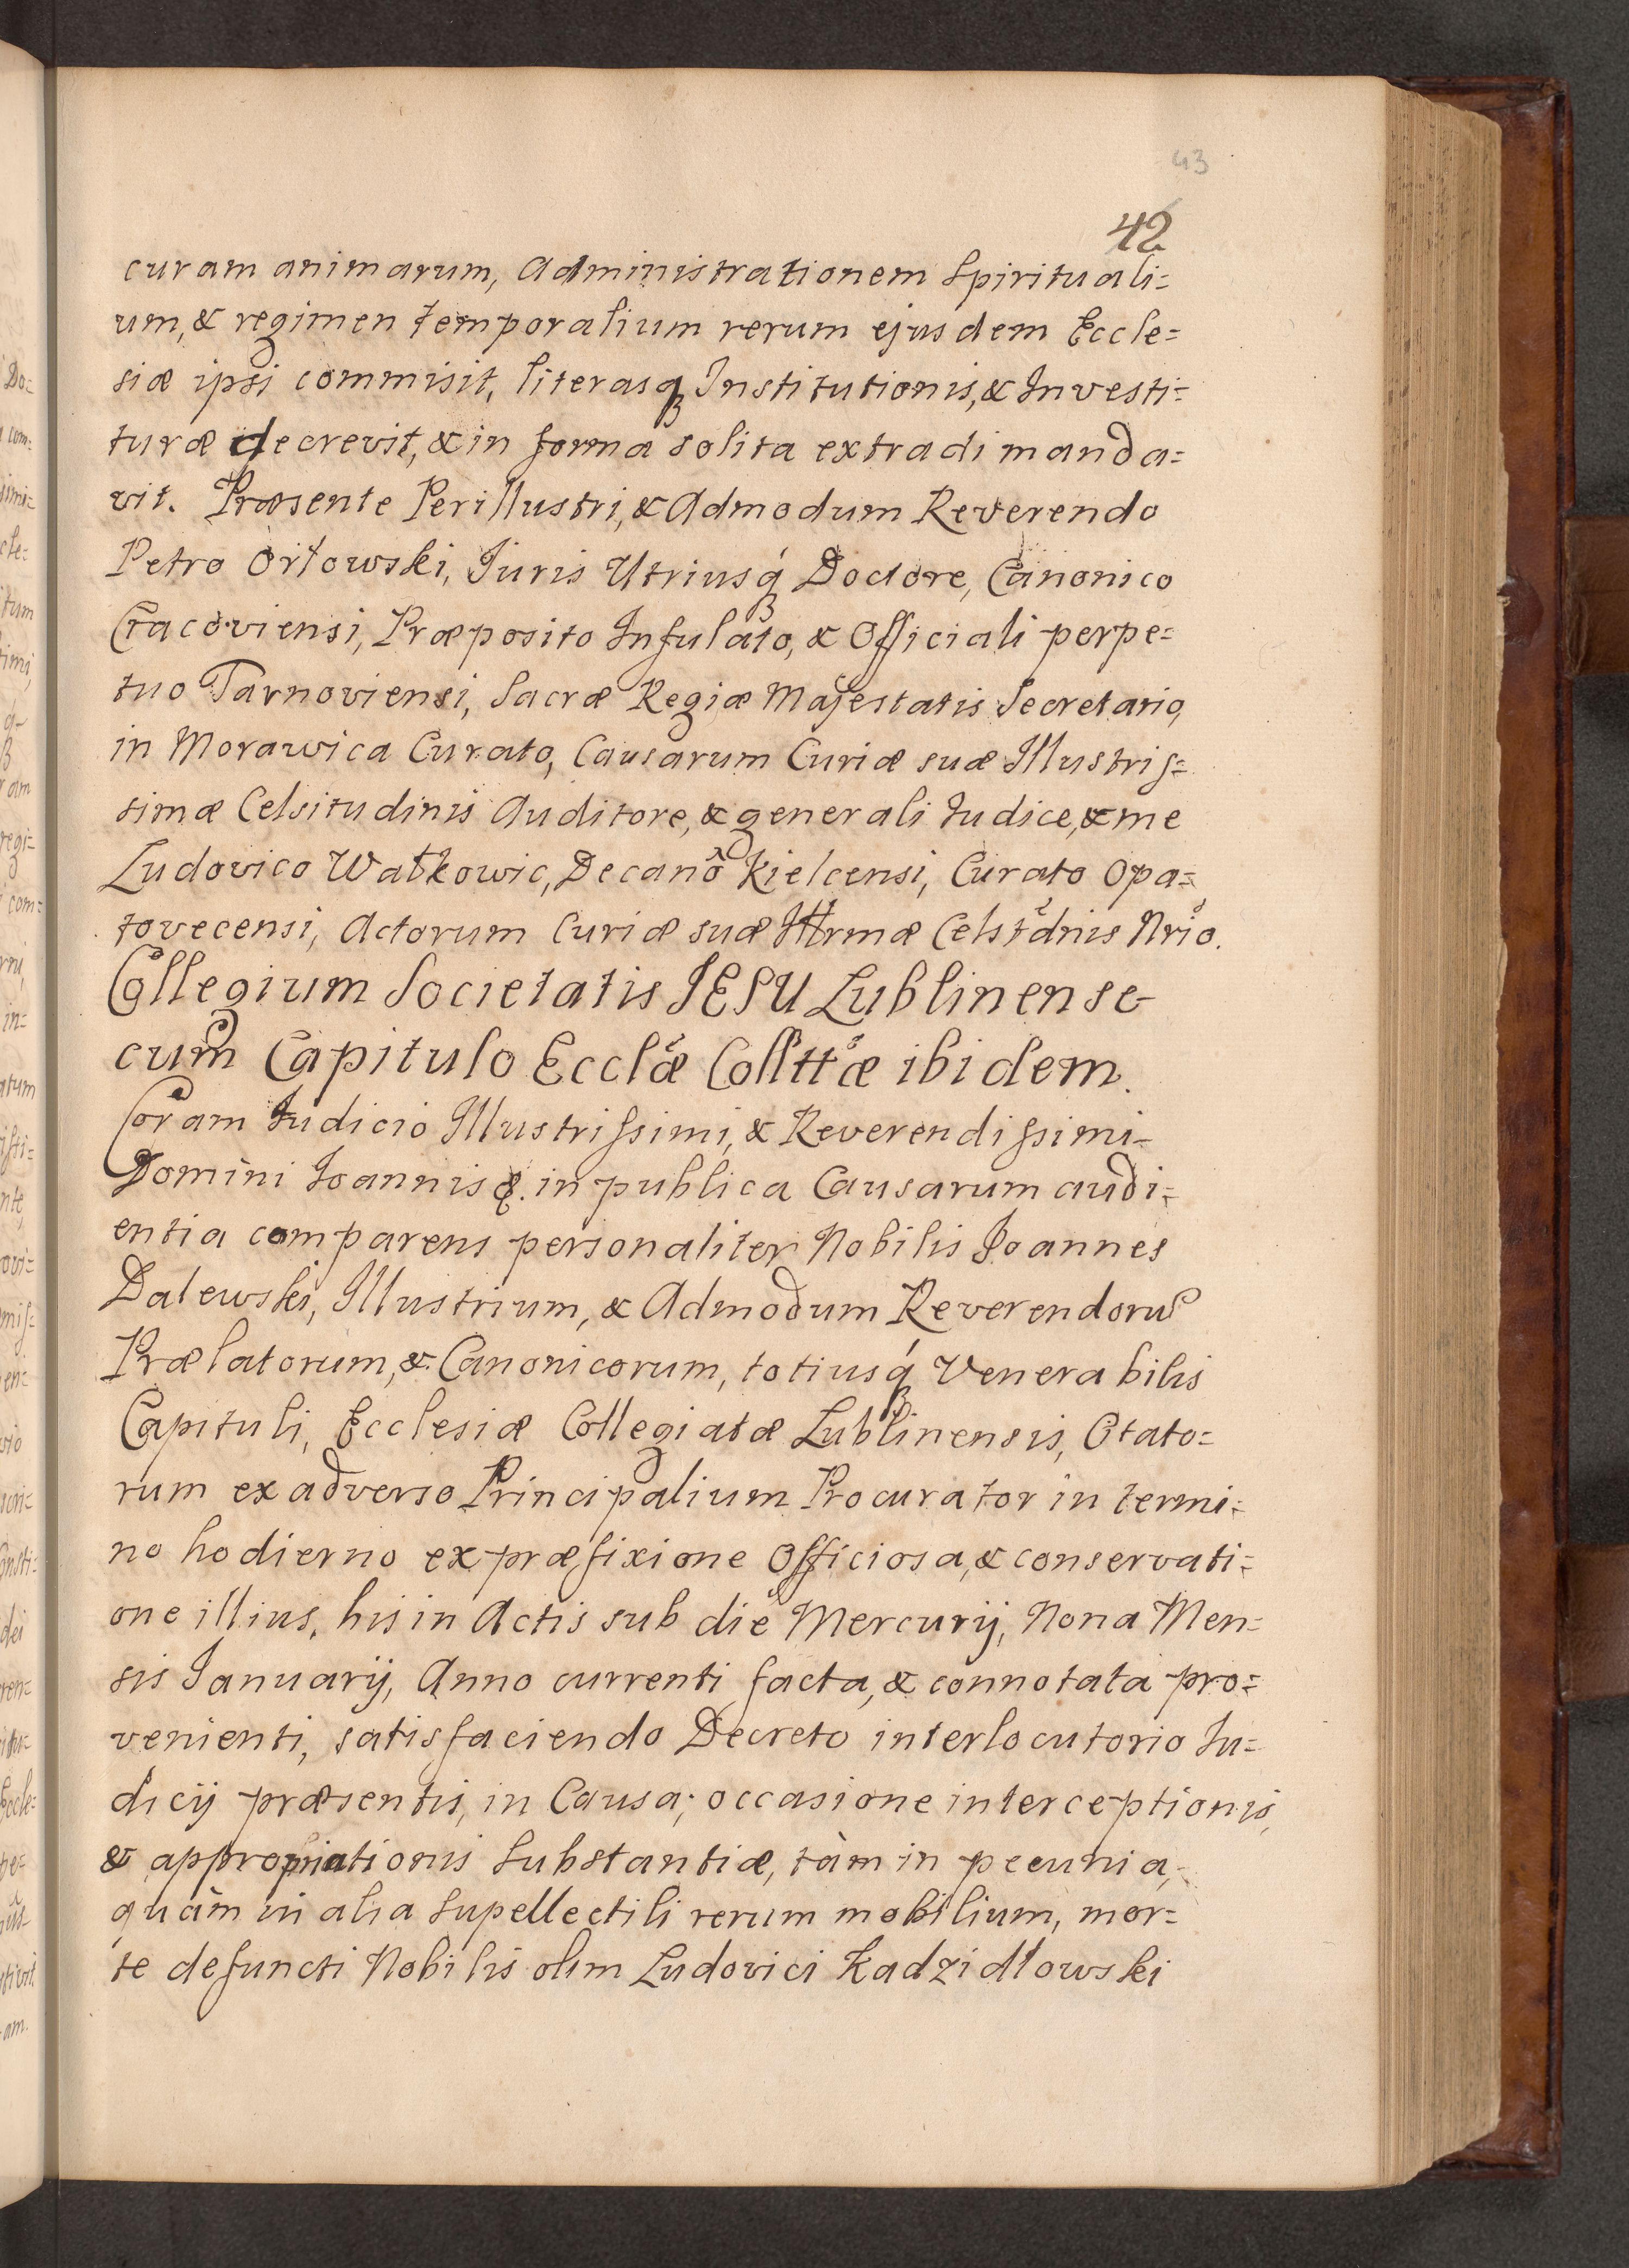 43
42
curam animarum, Administrationem Spirituali=
um, & regimen temporalium rerum ejusdem Eccle=
siæ ipsi commisit, literasq Institutionis, & Investi=
turæ decrevit, & in forma solita extradi manda=
vit. Præsente Perillustri, & Admodum Reverendo
Petro Orłowski, Iuris Utriusq́ Doctore, Canonico
Cracoviensi, Præposito Infulato, & Officiali perpe=
tuo Tarnoviensi, Sacræ Regiæ Majestatis Secretario,
in Morawica Curato, Causarum Curiæ suæ Illustris=
simæ Celsitudinis Auditore, & generali Iudice, & me
Ludovico Watkowic, Decanô Kielcensi, Curato Opa=
tovecensi, Actorum Curiæ suæ Illrmæ Celstdnis Nrio.
Collegium Societatis IESU Lublinense
cum Capitulo Ecclæ Collttæ ibidem.
Coram Iudicio Illustrissimi, & Reverendissimi
Domini Ioannis &. in publica Causarum audi=
entia comparens personaliter Nobilis Ioannes
Dalewski, Illustrium, & Admodum Reverendoru
Prælatorum, & Canonicorum, totiusq́ Venerabilis
Capituli, Ecclesiæ Collegiatæ Lublinensis, Citato=
rum ex adverso Principalium Procurator in termi=
no hodierno ex præfixione Officiosa, & conservati=
one illius, his in Actis sub die Mercurij, Nona Men=
sis Ianuarij, Anno currenti facta, & connotata pro=
venienti, satisfaciendo Decreto interlocutorio Iu=
dicij præsentis, in Causa; occasione interceptionis,
& appropriationis Substantiæ, tàm in pecunia,
quàm in alia Supellectili rerum mobilium, mor=
te defuncti Nobilis olim Ludovici Kadzidłowski